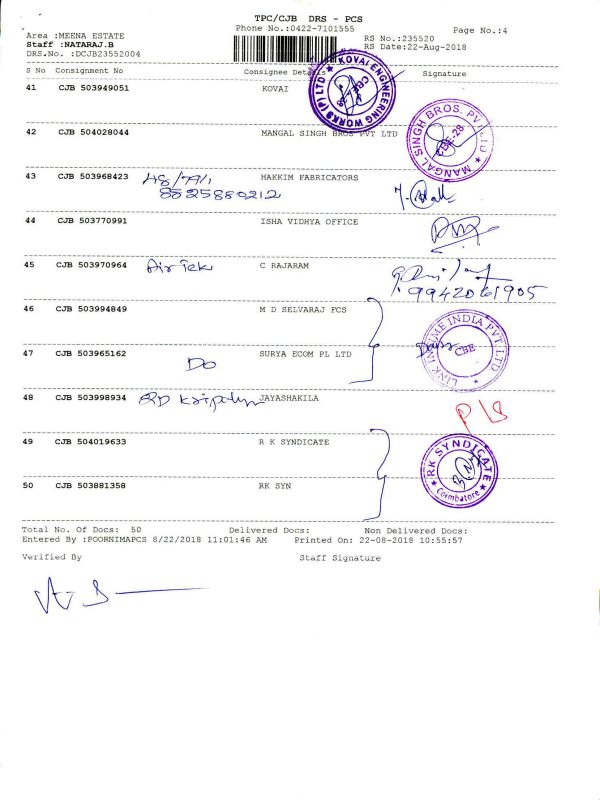 TPC/CJB DRS - PCS
Phone No.:0422-7101555
Page No.:4
Area :MEENA ESTATE
RS No.:235520
Staff :NATARAJ.B
RS Date:22-Aug-2018
DRS.No. :DCJB23552004
S No Consignment No Consignee Details Signature
41 CJB 503949051 KOVAI
KOVAI ENGINEERING WORKS (P) LTD
42 CJB 504028044 MANGAL SINGH BROS PVT LTD
MANGAL SINGH BROS. PVT LTD
CBE-28
43 CJB 503968423 HAKKIM FABRICATORS
8825880212
44 CJB 503770991 ISHA VIDHYA OFFICE
45 CJB 503970964 Air Tek C RAJARAM
9942061905
46 CJB 503994849 M D SELVARAJ FCS
LINK INTIME INDIA PVT LTD
CBE
47 CJB 503965162 SURYA ECOM PL LTD
Do
48 CJB 503998934 JAYASHAKILA
49 CJB 504019633 R K SYNDICATE
RK SYNDICATE
Coimbatore
50 CJB 503881358 RK SYN
Total No. Of Docs: 50 Delivered Docs: Non Delivered Docs:
Entered By :POORNIMAPCS 8/22/2018 11:01:46 AM Printed On: 22-08-2018 10:55:57
Verified By Staff Signature